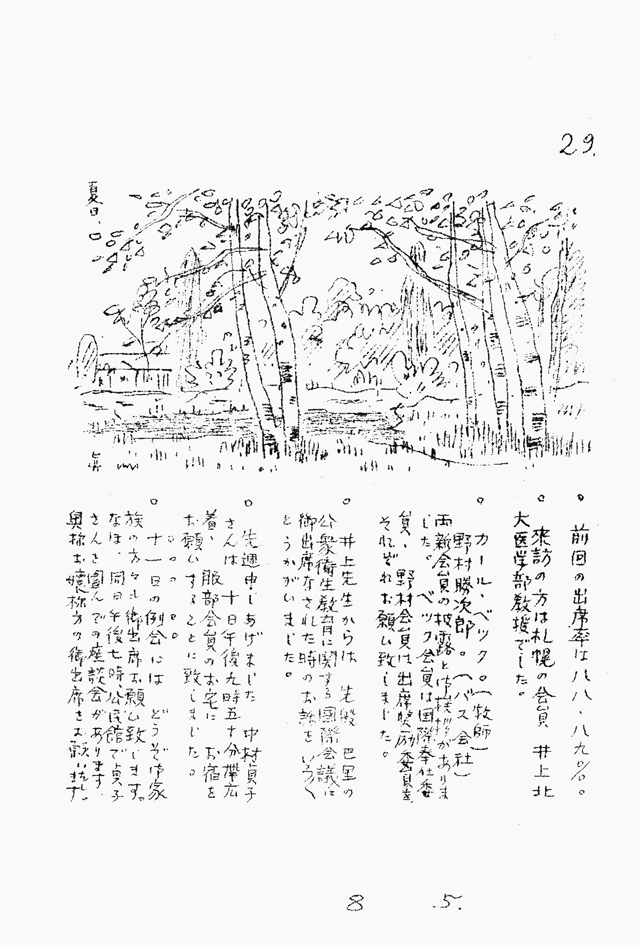 29.
夏日、
前回の出席率は八八・八九%。
来訪の方は札幌の会員 井上北
大医学部教授でした。
カール・ベック。(牧師)
野村勝次郎。(バス会社)
両新会員の披露と
した。ベック会員は国際奉仕委
員、野村会員は出席奨励委員を
それぞれお願ひ致しました。
井上先生からは 先般 巴里の
公衆衛生教育に関する国際会議に
御出席なされた時のお話をいろ〱
とうかがいました。
先週申しあげました 中村貞子
さんは 十日午後九時五十分帯広
着、服部会員のお宅に お宿を
お願いすることに致しました。
十一日の例会には どうぞ御家
族の方々も御出席お願い致します。
なほ、同日午後七時、公民館で貞子
さんを囲んでの座談会があります。
奥様お嬢様方の御出席をお願いします。
8 5.